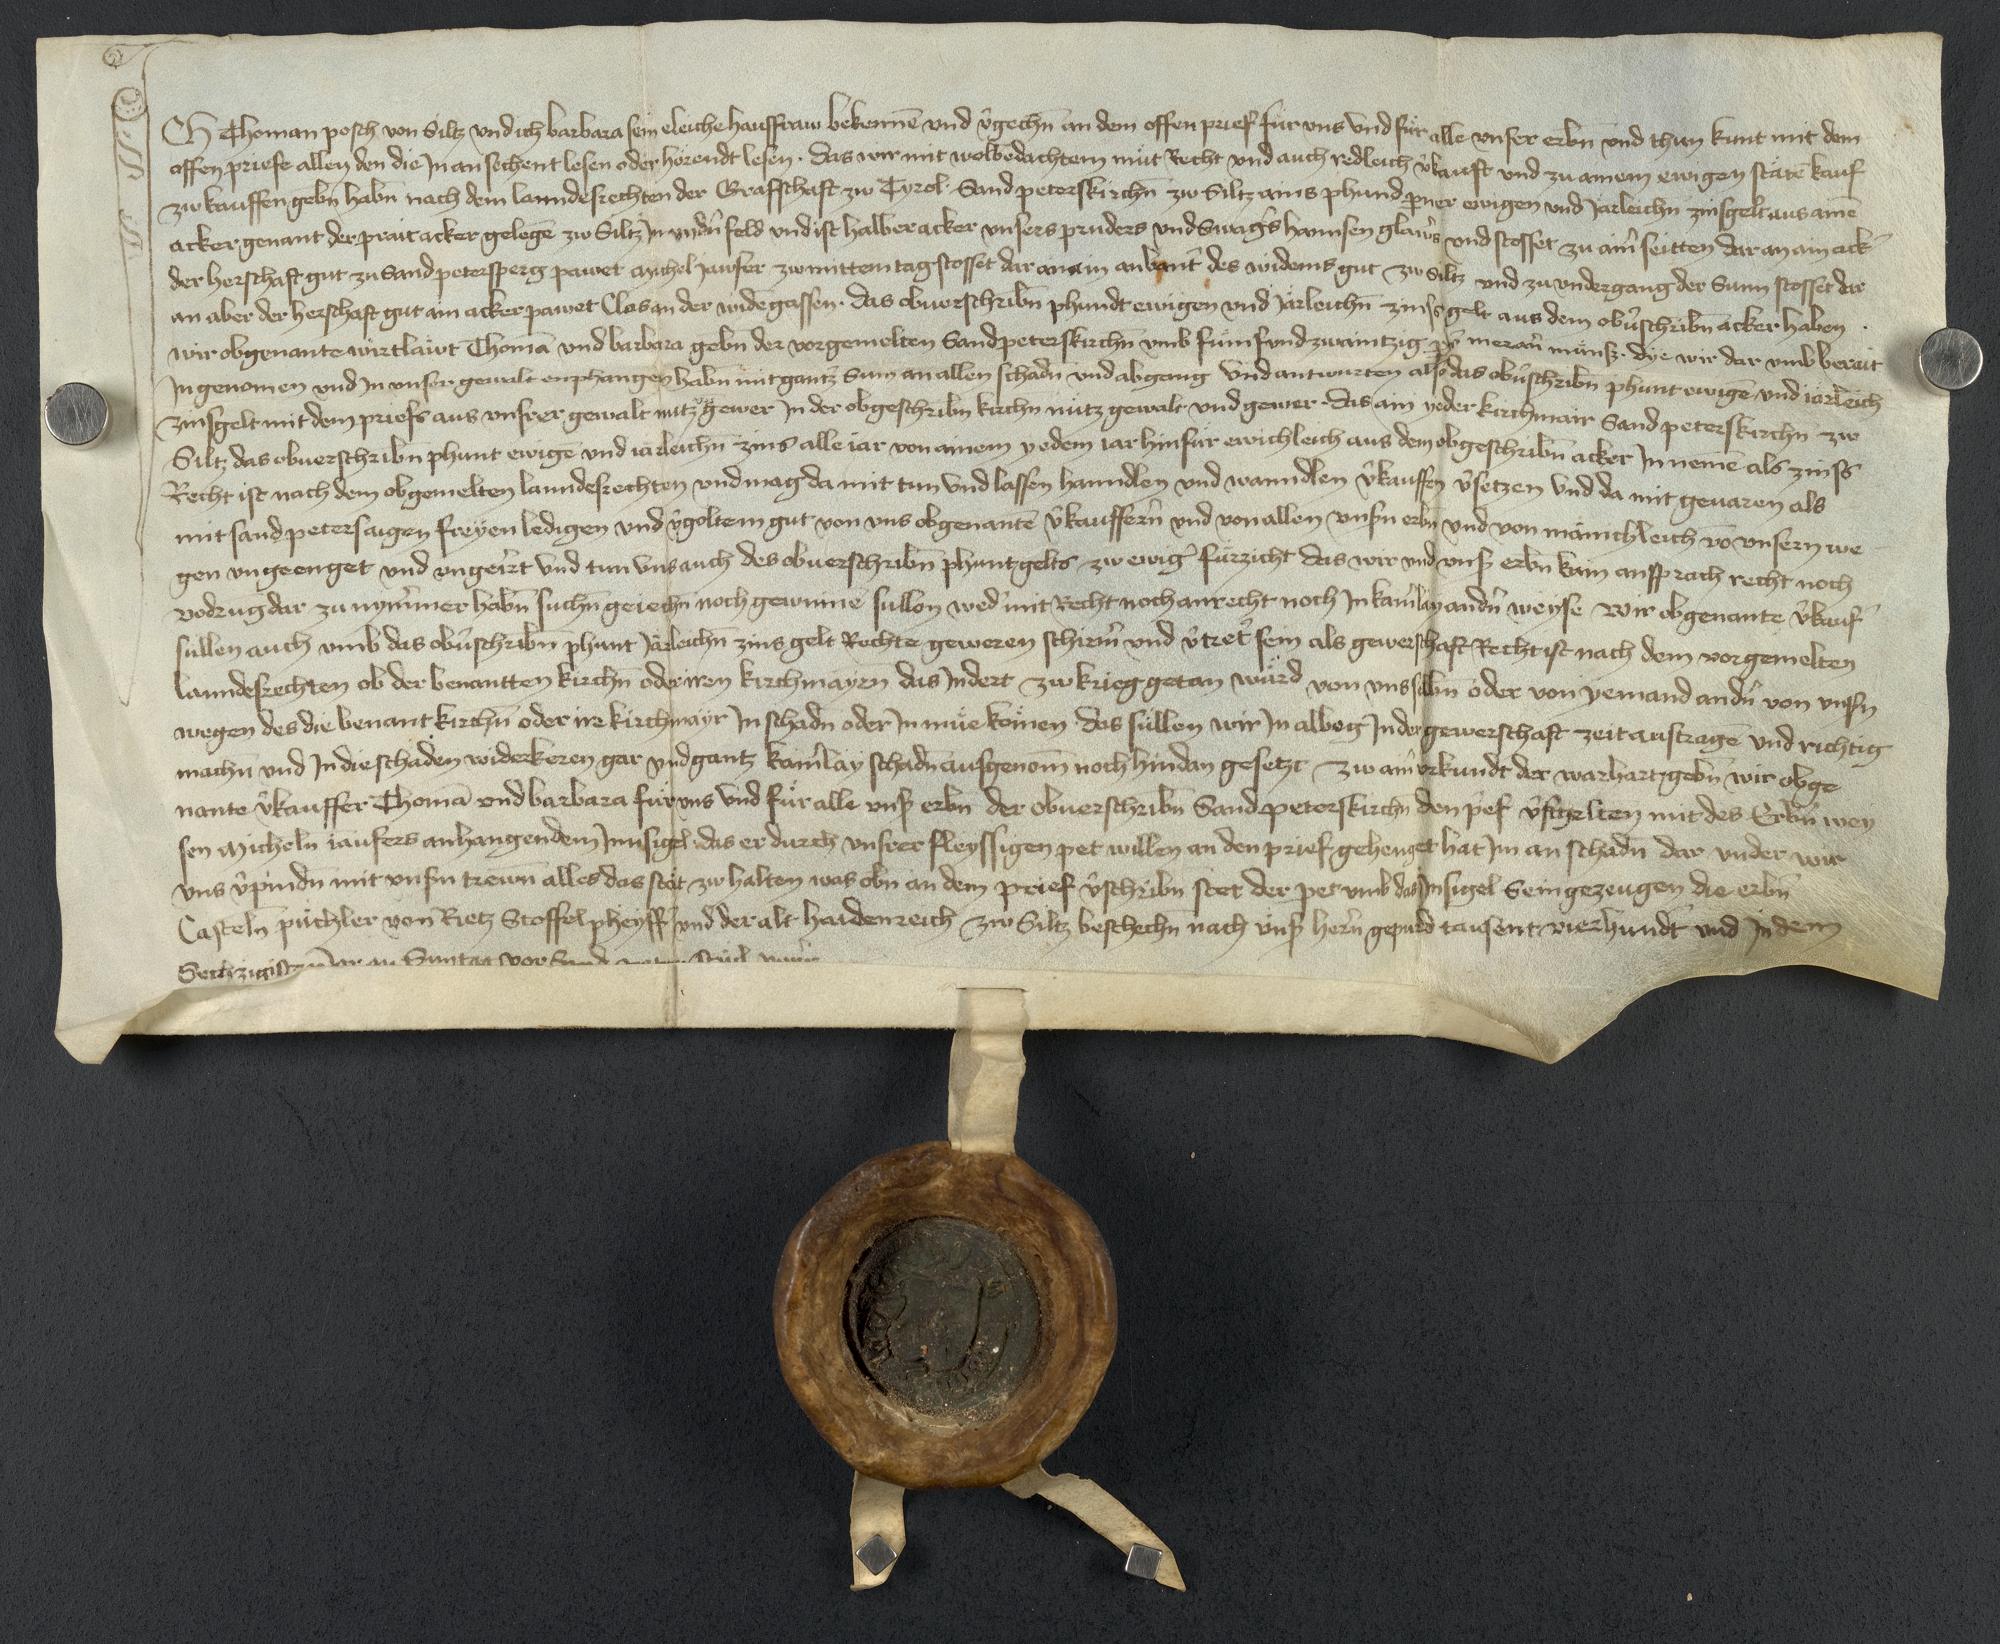 Ich Thoman posch von Siltz vnd ich barbara sein eleiche hausfraw bekennē vnd v̂gechn̄ an dem offen prief für vns vnd für alle vnser erbn̄ vnd thun kunt mit dem
offen priefe allen den die Jn an sechent lesen oder hörendt lesen · das wir mit wolbedachtem müt Recht vnd auch redleich v̂kauft vnd zu ainem ewigen stätē kauf
zw kauffen gebn̄ habn̄ nach dem lanndesrechten der Grafschaft zw Tyrol · Sand peterskirchn̄ zw Siltz ains phund perner ewigen vnd Järleichn̄ zinsgelt aus ainē
acker genant der prait acker gelegē zw Siltz Jn vndn̂ feld vnd ist halber acker vnsers pruders vnd Swag̉s hannsen glaw̉s vnd stosset zu aim̂ seitten dar an ain ack̉
der herschaft gut zu Sand petersperg pawet Michel Jaufer zw mittem tag stosset dar an ain anbant̉ des widems gut zw Siltz vnd zu vndergang der Sunn stosset dar
an aber der herschaft gut ain acker pawet Clas an der widēgassen · das obuerschribn̄ phundt ewigen vnd Järleichn̄ zins gelt aus dem obv̂schribn̄ acker haben ·
wir obgenante wirtläwt Thomā vnd barbara gebn̄ der vorgemelten Sand peterskirchn̄ vmb fümfvndzwaintzig meran̉ münss · dye wir dar vmb berait
Jn genomen vnd Jn vnser gewalt enphangen habn̄ mit gantz̉ Sum an allen schadn̄ vnd abgang vnd antwurten also das obv̂schribn̄ phunt ewigē vnd iärleich
zinsgelt mit dem priefs aus vnsrer gewalt nutz vn̄ gewer Jn der obgeschribn̄ kirchn̄ nutz gewalt vnd gewer · das ain yeder kirchmair Sand peterskirchn̄ zw
Siltz das obuerschribn̄ phunt ewigē vnd iärleichn̄ zins alle iar von ainem yedem iar hinfür ewichleich aus dem obgeschribn̄ acker Jn nemē als zinss
Recht ist nach dem obgemelten lanndesrechten vnd mag da mit tun vnd lassen hanndlen vnd wanndlen v̂kauffen v̂setzen vnd da mit geuaren als
mit sand peters aigen freyen ledigen vnd v̂goltem gut von vns obgenantē v̂kauffern̂ vnd von allen vnsn̄ erbn̄ vnd von mänichleich vō vnsern we
gen vngeenget vnd vngeirt vnd tun vns auch des obuerschribn̄ phunt gelts zw ewig̉ fürzicht das wir vnd vns̉ erbn̄ kain ansprach recht noch
vodrug dar zu nymm̉er habn̄ suchn̄ geiechn̄ noch gewinnē sullon wed̉ mit Recht noch an recht noch Jn kain̉lay andn̂ weyse wir obgenante v̂kauf̉
süllen auch vmb das obv̂schribn̄ phunt Järleichn̄ zins gelt Rechte geweren schirm̂ vnd v̂tret̉ sein als gewerschaft Recht ist nach dem vorgemelten
lanndesrechten ob der benantten kirchn̄ oder iren kirchmayrn das Jndert zw krieg getan würd von vns selbn̄ oder von yemand andn̂ von vnsn̄
wegen des die benant kirchn̄ oder irr kirchmayr Jn schadn̄ oder Jn müe kömen · des süllen wir Jn albeg Jn der gewerschaft zeit austragē vnd richtig
machn̄ vnd Jn die schäden widerkeren gar vnd gantz kain̉lay schadn̄ ausgenom̄ noch hindan gesetzt zw aim̂ vrkundt der warhait gebn̄ wir obge
nante v̂kauffer Thomā vnd barbara für vns vnd für alle vns̉ erbn̄ der obuerschribn̄ Sand peterskirchn̄ den pref v̂sigelten mit des Erbn̂ wey
sen Micheln iaufers anhangendem Jnnsigel · das er durch vnsrer fleyssigen pet willen an den prief gehenget hat Jm an schadn̄ dar vnder wir
vns v̂pindn̄ mit vnsn̄ trewn̄ alles das stät zw halten was obn̄ an dem prief v̂schribn̄ stet der pet vmb das Jnsigel Sein gezeugen die erbn̄
Casteln̄ püchler von Rietz Stoffel pheyff vnd der alt haidenreich zw Siltz beschechn̄ nach vns̉ hern̂ gepurd tausent vierhundt̉ vnd Jn dem
Sechzigisten̄ Jar an Suntag vor Sand